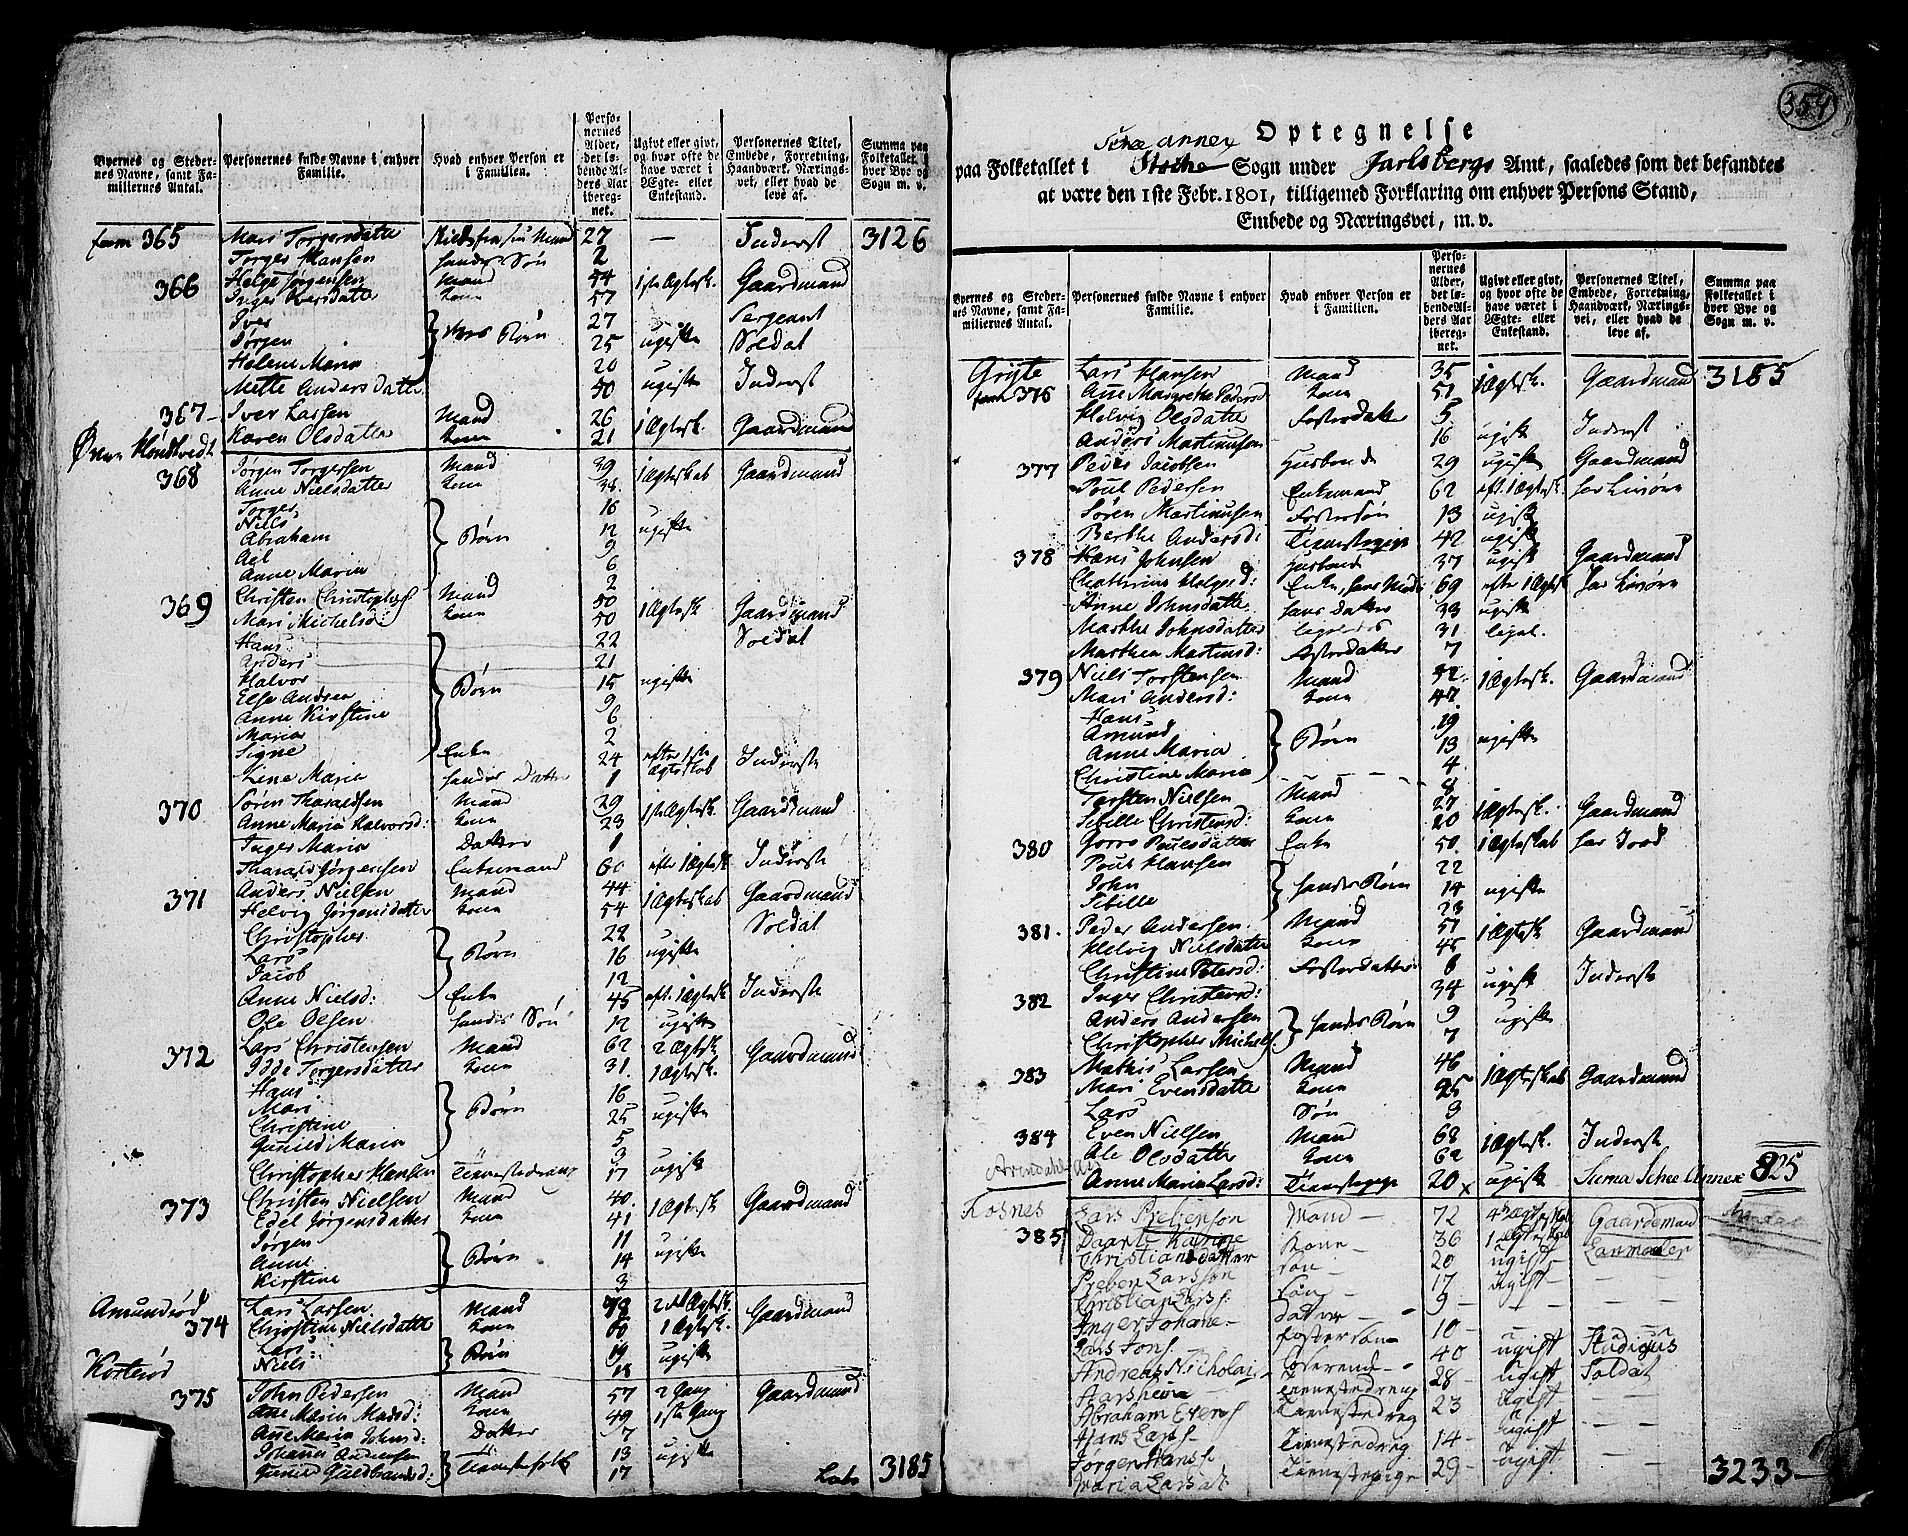 Byernes og Steder-nes Navne, samt Fa-miliernes Antal. | Personernes fulde Navne i enhver Familie. | Hvad enhver Person er i Familien. | Perso-nernes Alder, det lø-bende Al-ders Aar iberegnet. | Ugivt eller givt, og hvor ofte de have været i Ægte- eller Enkestand. | Personernes Titel, Embede, Forretning, Haandværk, Nærings-vei, eller hvad de leve af. | Summa paa Folketallet i hver Bye og Sogn m. v.
fam 365 Mari Torgersdatter 27 — Inderst 3126
Torger Hansen hendes Søn 2
366 Helge Jørgensen Mand 44 1ste Ægtesk. Gaardmand
Inger Iversdatter Kone 57
Iver 27 Sergeant
Jørgen Børn 25 ugifte Soldat
Helene Maria 20
Mette Anders Datter 50 ugifte Inderst
367 Iver Larsen Mand 26 1 Ægtesk. Gaardmand
Karen Olsdatter Kone 21
368 Jørgen Torgersen Mand 39 1 Ægteskab Gaardmand
Anne Nielsdatter Kone 38
Torger 16
Niels 12 ugifte
Abraham Børn 9
6
Anne Maria 2
369 Christen Christophers Mand 50 1 Ægtesk Gaardmand
Mari Michelsd: Kone 50
Hans 22 Soldat
Anders 21
Halvor 15 ugifte
Else Andrea Børn 9
Anne Kirstine 6
Maria 2
Signe Enke 24 efter 1ste Ægteskab Inderste
Line Maria hendes Datter 1
370 Søren Tharaldsen Mand 29 1ste Ægtesk. Gaardmand
Anne Maria Halvorsd: Kone 23
Inger Maria Datter 1
Tharald Jørgensen Enkemand 60 efter 1 Ægtesk Inderste
371 Anders Nielsen Mand 44 1 Ægteskab Gaardmand
Helvig Jørgensdatter Kone 54
Christopher 22 Soldat
Lars Børn 16 ugifte
Jacob 12
Anne Nielsd: Enke 45 eft. 1 Ægtesk Inderste
Ole Olsen hendes Søn 12 ugifte
372 Lars Christensen Mand 62 2 Ægtesk Gaardmand
Idde Torgersdatter Kone 31. 1 Ægtesk.
Hans 16
Mari Børn 25 ugifte
Christine 5
Gunild Maria 3
Christopher Hansen Tienestedreng 17 ugift
373 Christen Nielsen Mand 40. 1 Ægtesk Gaardmand
Edel Jørgensdatter Kone 41
Jørgen 11
Anne Børn 14 ugifte
Kirstine 3
Amundrød
374 Lars Larsen Mand 78 2 Ægtesk. Gaardmand
Christine Nielsdatter Kone 60 1 Ægtesk.
Lars 19
Niels Børn 18 ugifte
Korterød
375 John Pedersen Mand 57 2 Gang Gaardmand
Ane Maria Madsd: Kone 49 1ste Gang
Ane Maria Johnsd: Datter 7
Johannes Andersen 13 ugifte
Gunild Guldbrandsd: Tienestefolk 17
Lat. 3185
354
Optegnelse
Schee annex
paa Folketallet i Stocke Sogn under Jarlsbergs Amt, saaledes som det befandtes
at være den 1ste Febr. 1801, tilligemed Forklaring om enhver Persons Stand,
Embede og Næringsvei, m. v.
Byernes og Steder-nes Navne, samt Fa-miliernes Antal. | Personernes fulde Navne i enhver Familie. | Hvad enhver Person er i Familien. | Perso-nernes Alder, det lø-bende Al-ders Aar iberegnet. | Ugivt eller givt, og hvor ofte de have været i Ægte- eller Enkestand. | Personernes Titel, Embede, Forretning, Haandværk, Nærings-vei, eller hvad de leve af. | Summa paa Folketallet i hver Bye og Sogn m. v.
Gryte Lars Hansen Mand 35 1 Ægtesk. Gaardmand 3185
fam 376 Ane Margrethe Pedersd Kone 51
Helvig Olsdatter Fosterdatter 5
Anders Martinusen 16 ugift Inderst
377 Peder Jacobsen Husbonde 29 ugift Gaardmand
Poul Pedersen Enkemand 62 eft. 1 Ægtesk.
Søren Martinusen Fostersøn 13 ugift
Berthe Andersd: Tienestepige 42 ugift
378 Hans Johnsen Husbond 37 ugift Gaardmand
Cathrine Holgersd: Enke, hans Moder 69 efter 1 Ægtesk
Anne Johnsdatter hans Datter 33 ugift
Marthe Johnsdatter 31
Marthea Martinsd: Fosterdatter 7
379 Niels Torstensen Mand 42 1 Ægtesk. Gaardmand
Mari Andersd: Kone 47
Hans 19
Amund Børn 13 ugifte
Anne Maria 4
Christine Maria 8
Torsten Nielsen Mand 27 1 Ægtesk. Gaardmand
Sibille Christensd: Kone 20
380 Poulsdatter Enke 50 1 Ægteskab har Jord
Poul Hansen 22
John hendes Børn 14 ugifte
Sibille 23
381. Peder Andersen Mand 51 1 Ægtesk Gaardmand
Helvig Nielsdatter Kone 45
Christine Petersd: Fosterdatter 6
382 Inger Christensd: 34 ugift Inderste
Anders Andersen hendes Børn 9 ugifte
Christopher Michels. 7
383 Mathis Larsen Mand 46 1 Ægteskab Gaardmand
Mari Evensdatter Kone 25
Lars Søn 3
384 Even Nielsen Mand 68 1 Ægtesk. Inderste
Ale Olsdatter Kone 62
Anne Maria Larsd: Tienestepige 20 x ugift Suma Schee Annex 825
Kosnes Lars Prebenson Mand — 72 4de Ægteskab Gaardemand
385 Daarte Karine Kone — 36 1 Ægteskab
Christiansdatter Søn — 20 ugift
Preben Larssøn Søn — 17 ugift —
Christian Larss. 9 — —
Inger Johane — Datter 10 — —
Lars Jons. foster søn — 40 ugift Studiosus
Andreas Nicholai Loserende — 28 — Ugift Soldat
Aarshein Tienestedreng 23 Ugift
Abraham Evers. Tienestedreg ugift — —
Hans Lars. Tienestedreg 14 — Ugift.
Jørgen Hans.
Maria Larsdt. Tienestepige 29 — 3233 —